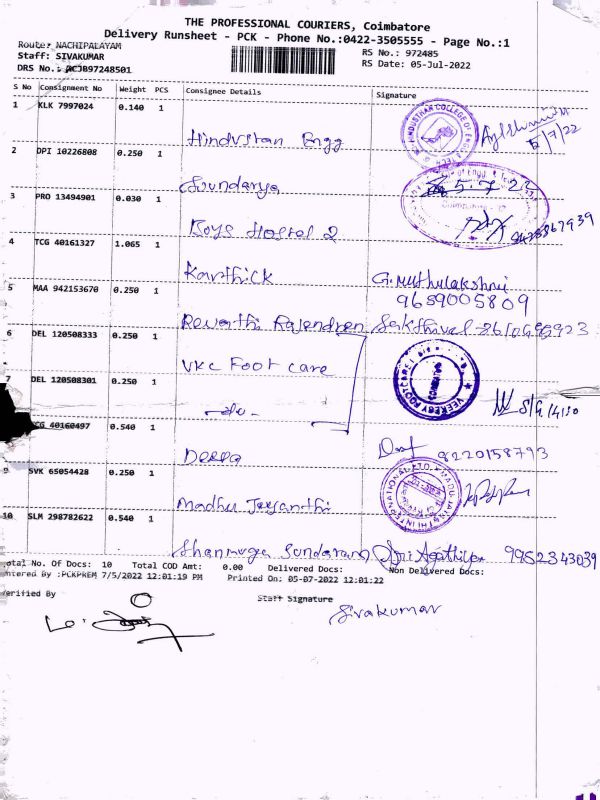 THE PROFESSIONAL COURIERS, Coimbatore
Delivery Runsheet - PCK - Phone No.:0422-3505555 - Page No.:1
Route: NACHIPALAYAM
RS No.: 972485
Staff: SIVAKUMAR
RS Date: 05-Jul-2022
DRS No.: 97248501
S No Consignment No Weight PCS Consignee Details Signature
1 KLK 7997024 0.140 1
Hindustan Engg
5/7/22
2 DPI 10226808 0.250 1
Soundarya
5.7.22
3 PRO 13494901 0.030 1
Boys Hostel 2
4 TCG 40161327 1.065 1
Karthick G. Muthulakshmi
9659005809
5 MAA 942153670 0.250 1
Revathi Rajendren Sakthivel
6 DEL 120508333 0.250 1
VKC Foot care
7 DEL 120508301 0.250 1
-do-
CG 40160497 0.540 1
Deepa 9220158793
9 SVK 65054428 0.250 1
Madhu Jayanthi
10 SLM 298782622 0.540 1
Shanmuga Sundaram 9952343039
otal No. Of Docs: 10 Total COD Amt: 0.00 Delivered Docs: Non Delivered Docs:
ntered By :PCKPREM 7/5/2022 12:01:19 PM Printed On: 05-07-2022 12:01:22
erified By Staff Signature
Sivakumar